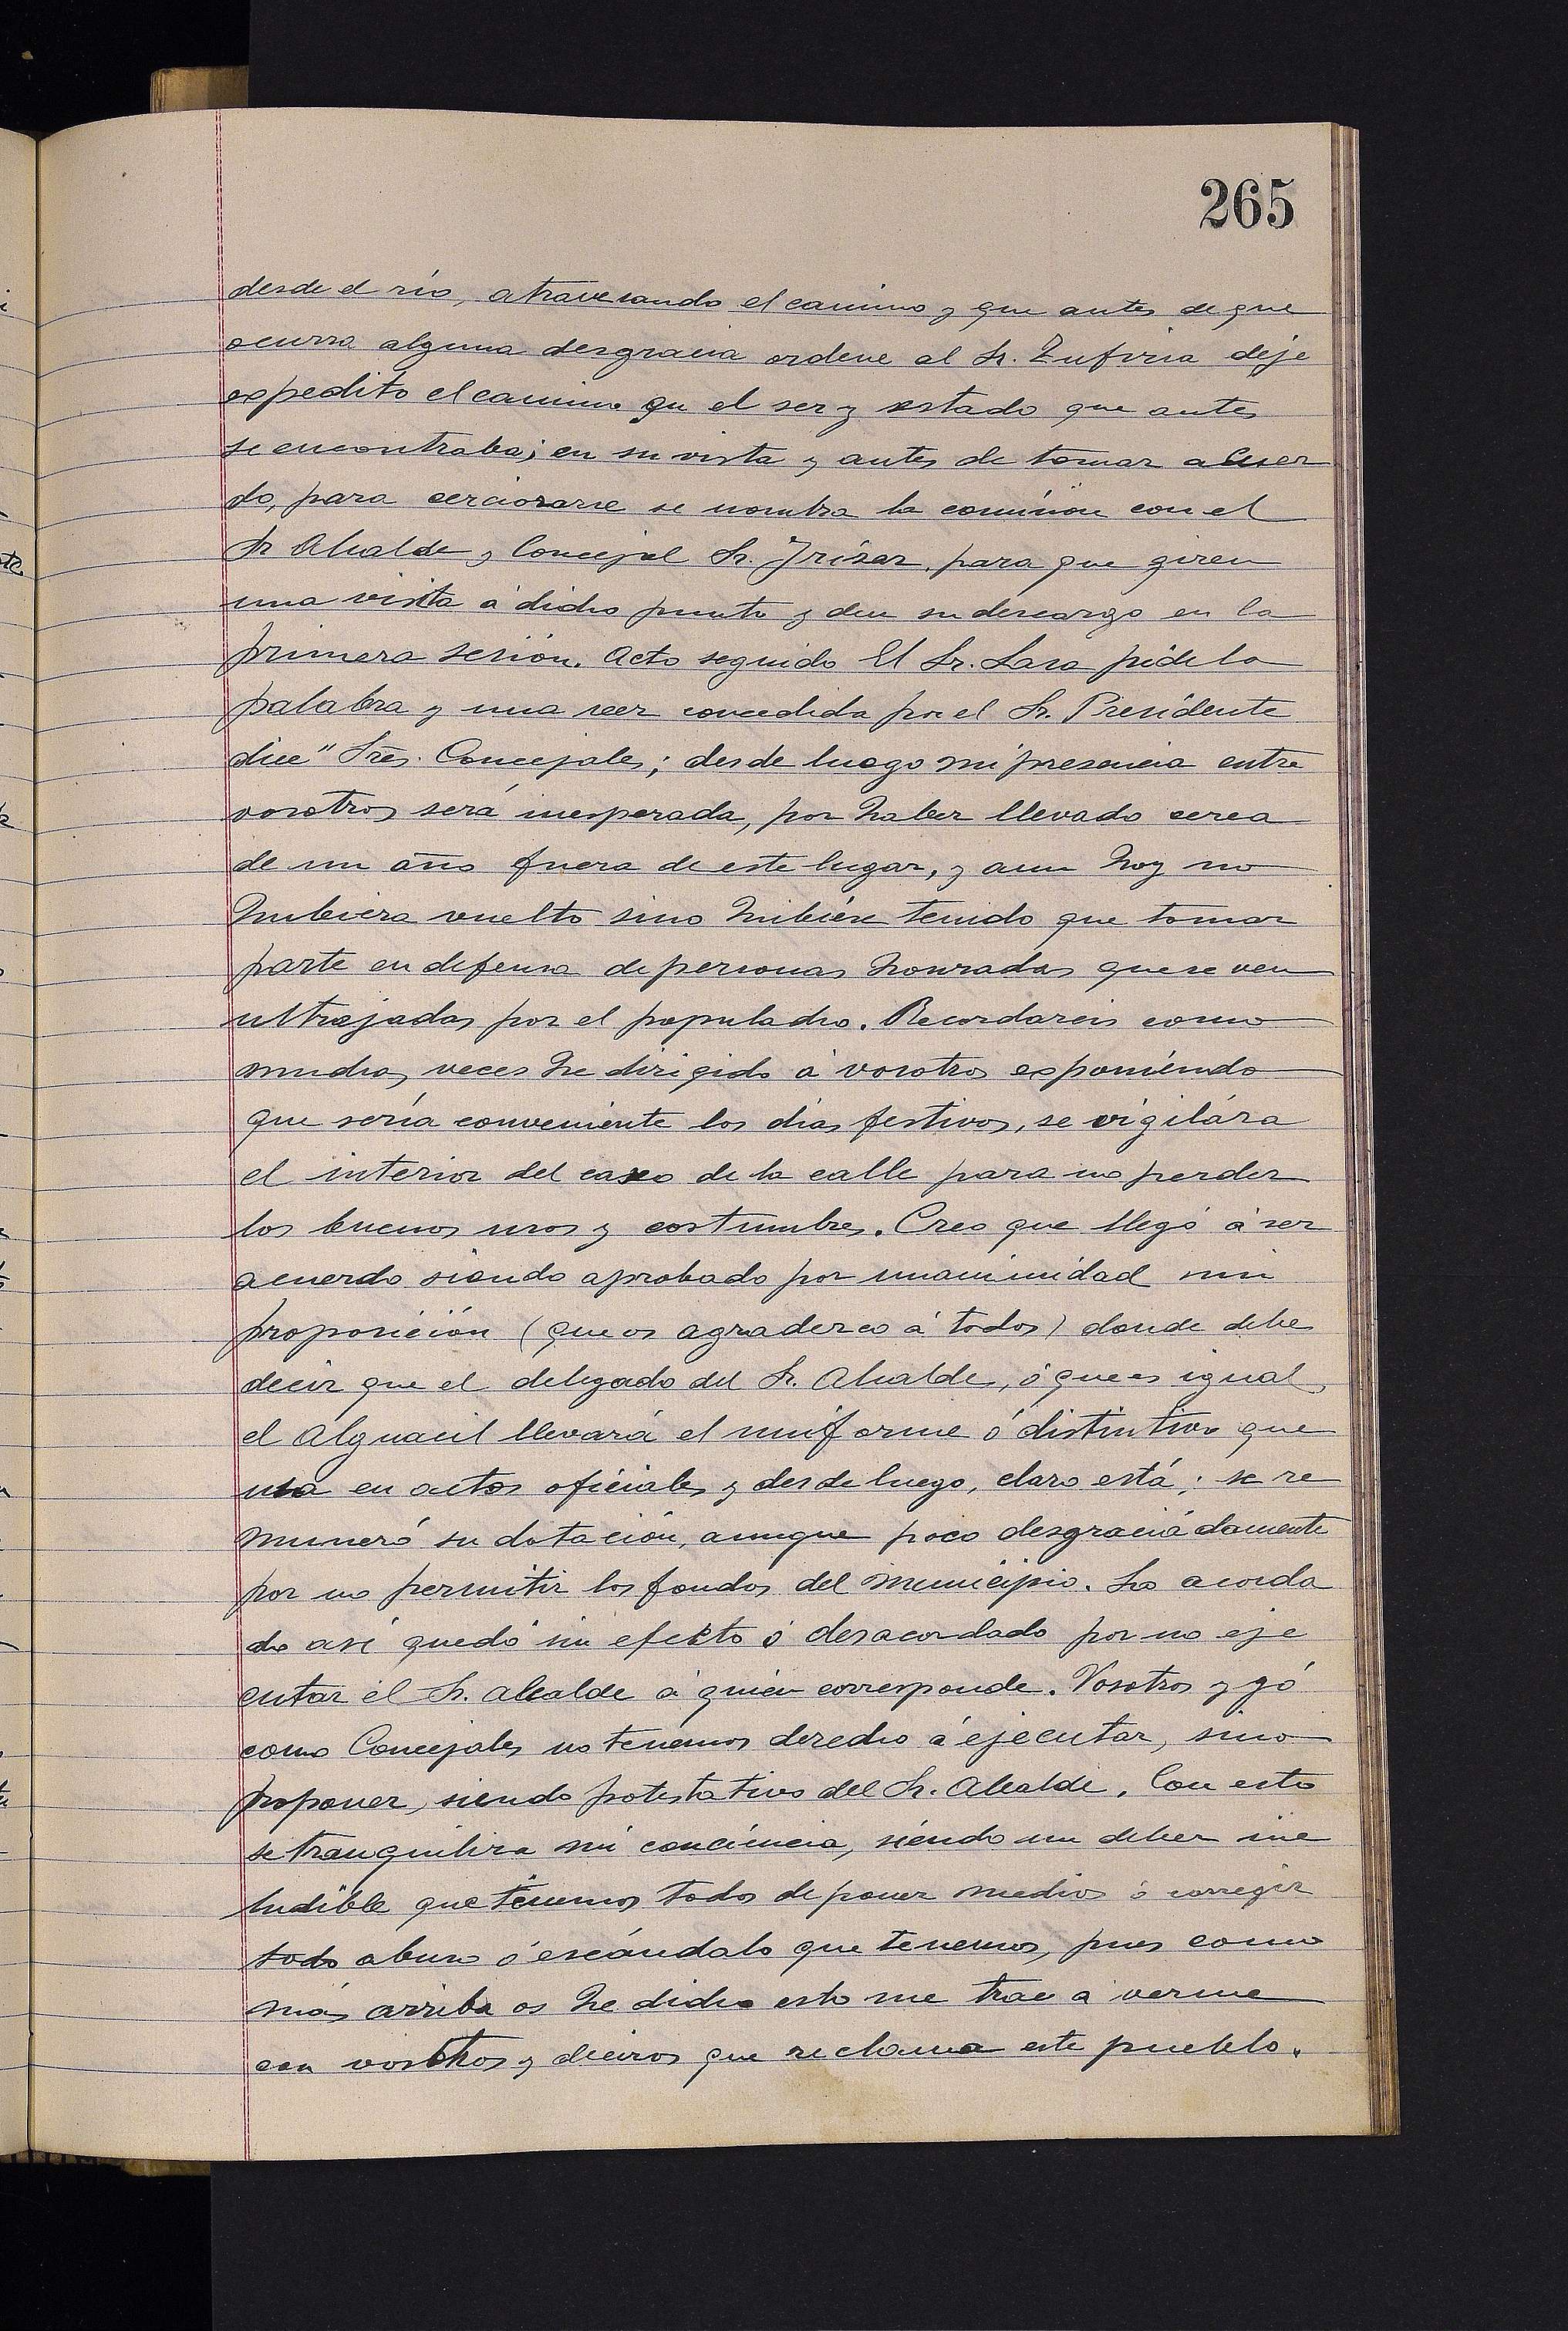 265
desde el río, atravesando el camino y que antes de que
ocurra alguna desgracia ordene al Sr. Zufiria deje
expedito el camino en el ser y estado que antes
se encontraba; en su vista y antes de tomar acuer
do, para cerciorarse se nombra la comisión con el
Sr Alcalde y Concejal Sr. Irízar, para que giren
una visita á dicho punto y den su descargo en la
primera sesión. Acto seguido El Sr. Lasa pide la
palabra y una vez concedida por el Sr. Presidente
dice "Sres. Concejales; desde luego mi presencia entre
vosotros será inesperada, por haber llevado cerca
de un año fuera de este lugar, y aun hoy no
hubiera vuelto sino hubiése tenido que tomar
parte en defensa de personas honradas que se ven
ultrajadas por el populacho. Recordareis como
muchas veces he dirigido á vosotros exponiéndo
que sería conveniente los días festivos, se vigilára
el interior del casco de la calle para no perder
los buenos usos y costumbres. Creo que llegó á ser
acuerdo siendo aprobado por unanimidad mi
proposición (que os agradezco á todos) donde debe
decir que el delegado del Sr. Alcalde, ó que es igual,
el Alguacil llevará el uniforme ó distintivo que
usa en actos oficiales y desde luego, claro está; se re
muneró su dotación, aunque poco desgraciádamente
por no permitir los fondos del municipio. Lo acorda
do así quedó sin efecto ó desacordado por no eje
cutar el Sr. alcalde á quien corresponde. Vosotros y yó
como Concejales no tenemos derecho á ejecutar, sino
proponer, siendo potestativo del Sr. Alcalde. Con esto
se tranquiliza mi conciencia, siendo un deber ine
ludible que tenemos todos de poner medios ó corregir
todo abuso ó escándalo que tenemos, pues como
más arriba os he dicho esto me trae á verme
con vosotros y deciros que reclama este pueblo.